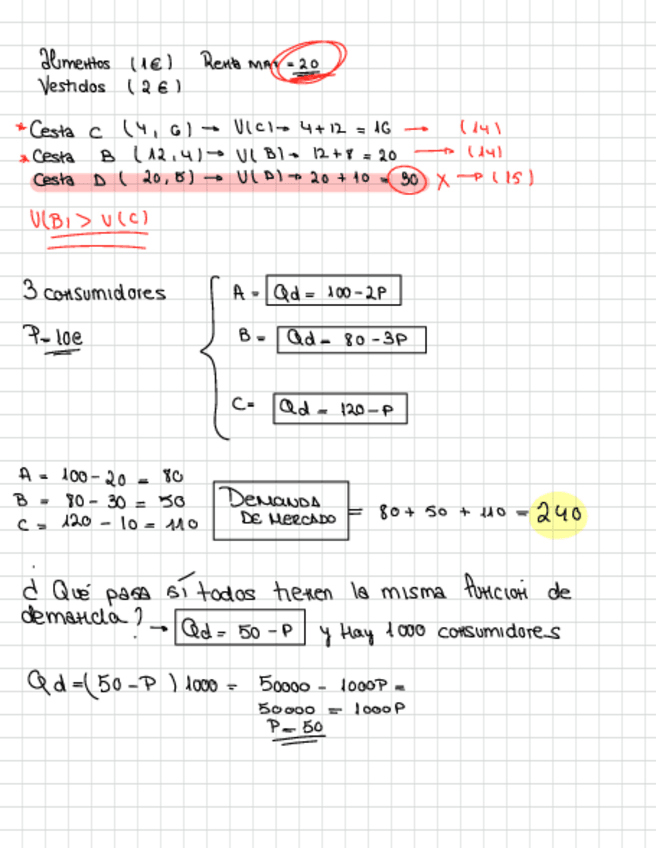 Alimentos (1€) Renta MAX = 20
Vestidos (2€)
* Cesta C (4, 6) → U(C) → 4+12 = 16 → (14)
* Cesta B (12,4) → U(B) → 12+8 = 20 → (14)
Cesta D (20,5) → U(D) → 20+10 = 30 X → (15)
U(B) > U(C)
3 consumidores
P=10e
A = Qd = 100-2P
B = Qd = 80-3P
C= Qd = 120-P
A = 100-20 = 80
B = 80-30 = 50
C = 120-10 = 110
DEMANDA DE MERCADO = 80+50+110 = 240
¿Qué pasa sí todos tienen la misma función de
demanda? → Qd = 50-P y Hay 1000 consumidores
Qd=(50-P)1000 = 50000 - 1000P =
50000 = 1000P
P=50